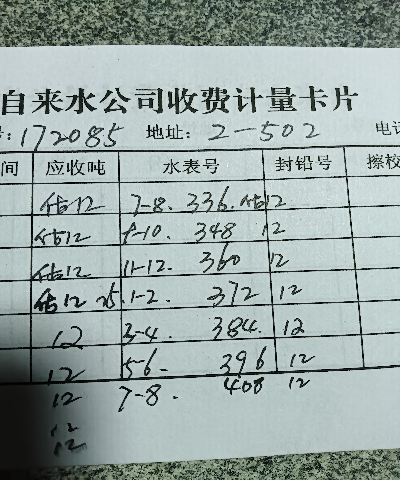 自来水公司收费计量卡片
号:172085 地址: 2-502 电话
间 应收吨 水表号 封铅号 擦校
估12 7-8. 336. 估12
估12 9-10. 348 12
估12 11-12. 360 12
估12 25.1-2. 372 12
12 3-4. 384. 12
12 5-6. 396 12
12 7-8. 408 12
12
12